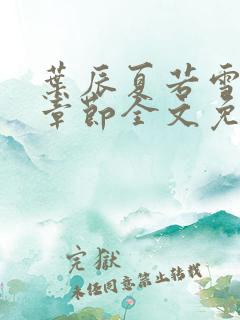 葉辰夏若雪
章節全文免
完獄
未経同意禁止转载